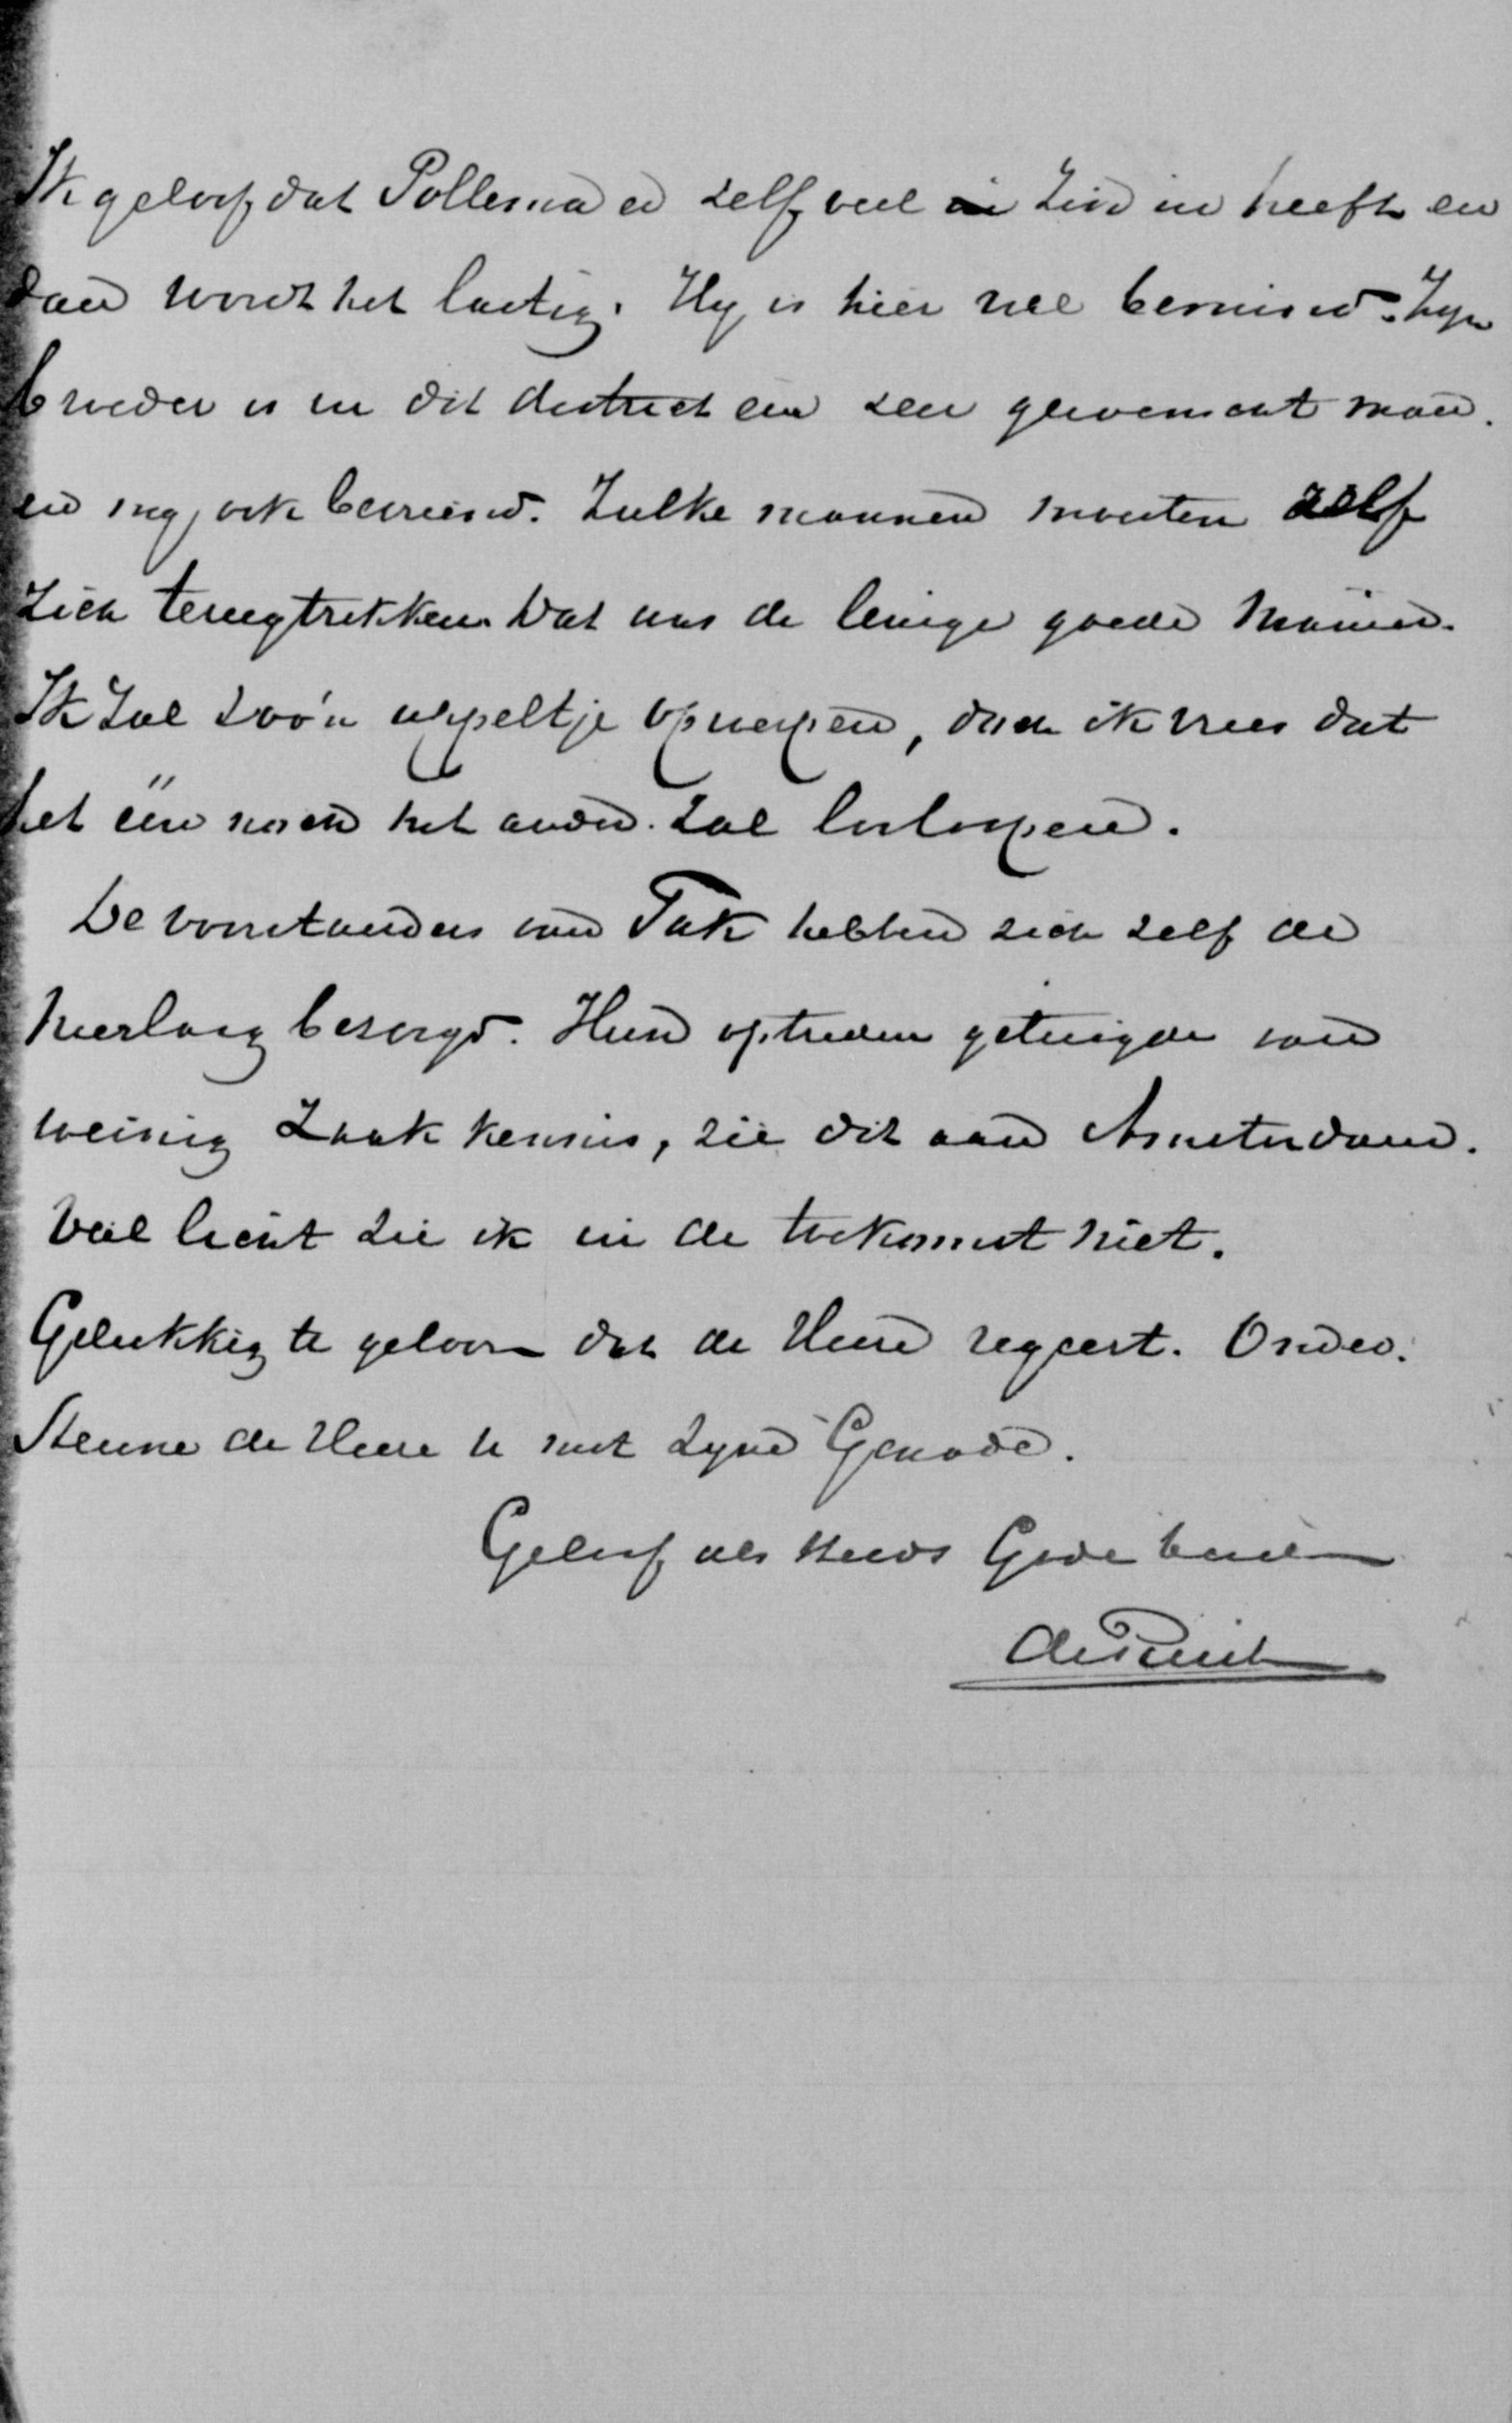 Ik geloof dat Pollema er zelf veel in zin in heeft en
dan wordt het lastig. Hy is hier veel bevriend. Zyn
broeder is in dit district een zeer gewenscht man.
en my ook bevriend. Zulke mannen moeten zelf
zich terugtrekken. Dat was de eenige goede manier.
Ik zal zoo'n appeltje opwerpen, doch ik vrees dat
het één noch het ander zal loslopen.
De voorstanders van Tak hebben zich zelf de
neerlaag bezorgd. Hun optreden getuigde van
weinig zaak kennis, zie dit aan Amsterdam.
Veel licht zie ik in de toekomst niet.
Gelukkig te gelooven dat de Heere regeert.
Steune de Heere U met Zyne Genade.
Geloof als steeds